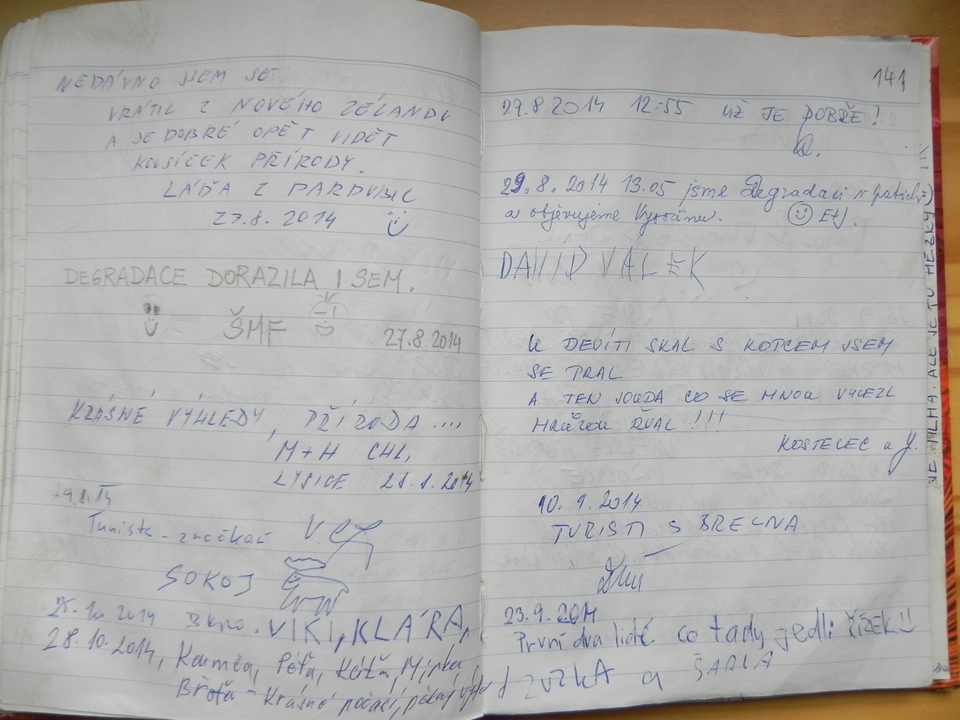 NEDÁVNO JSEM SE
VRÁTIL Z NOVÉHO ZÉLANDU
A JE DOBRÉ OPĚT VIDĚT
KOUSÍČEK PŘÍRODY.
LÁĎA Z PARDUBIC
27.8. 2014
DEGRADACE DORAZILA I SEM.
ŠMF
27.8.2014
KRÁSNÉ VÝHLEDY, PŘÍRODA ....
M+H CHL,
LYSICE 28.8.2014
29.8.14
Turista - značkař
SOKOJ
25.10 2014 VIKI, KLÁRA,
28.10.2014, Kamča, Péťa, Káťa, Mirka,
Břéťa - Krásné počasí, pěkný
141
29.8 2014 12:55 UŽ JE DOBŘE!
29.8.2014 13.05 jsme Degradaci v patách
a objevujeme Vysočinu. EtJ.
DAVID VÁLEK
U DEVÍTI SKAL S KOTCEM JSEM
SE PRAL
A TEN JOUDA CO SE MNOU VYLEZL
HRŮZOU ŘVAL !!!
KOSTELEC a J.
10.9.2014
TURISTI S BRECNA
23.9.2014
První dva lidé co tady jedli řízek
ZUZKA a ŠÁRKA
JE MLHA. ALE JE TU HEZKY :)